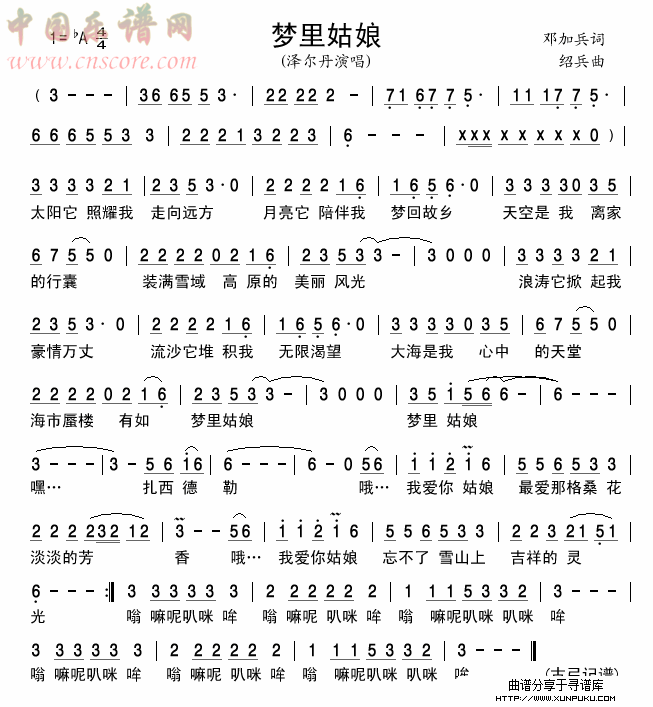 中国乐谱网
www.cnscore.com
1=♭A 4/4
梦里姑娘
(泽尔丹演唱)
邓加兵词
绍兵曲
( 3 - - - | 36 65 5 3· | 22 22 2 - | 71 67 7 5· | 11 17 7 5· |
66 65 53 3 | 22 21 32 23 | 6 - - - | xxx xx xx x0 ) |
33 33 21 | 23 53·0 | 22 22 16 | 16 56·0 | 33 330 35 |
太阳它 照耀我 走向远方 月亮它 陪伴我 梦回故乡 天空是 我 离家
67 55 0 | 22 220 216 | 23 53 3 - | 3 0 0 0 | 33 33 21 |
的行囊 装满雪域 高 原的 美丽 风光 浪涛它掀 起我
23 53·0 | 22 22 16 | 16 56·0 | 33 330 35 | 67 55 0 |
豪情万丈 流沙它堆 积我 无限渴望 大海是我 心中 的天堂
22 220 216 | 23 53 3 - | 3 0 0 0 | 35 i 56 6 - | 6 - - - |
海市蜃楼 有如 梦里姑娘 梦里 姑娘
3 - - - | 3 - 56 i6 | 6 - - - | 6 - 0 56 | i i 2 i6 | 55 65 53 |
嘿… 扎西 德 勒 哦… 我爱你 姑娘 最爱那格桑 花
22 2 232 12 | 3 - - 56 | i i2 i6 | 55 65 3 | 23 2 21 5 |
淡淡的芳 香 哦… 我爱你姑娘 忘不了 雪山上 吉祥的 灵
6 - - - :‖ 3 33 33 3 | 2 22 22 2 | 1 11 53 32 | 3 33 33 3 |
光 嗡 嘛呢叭咪 哞 嗡 嘛呢叭咪 哞 嗡 嘛呢 叭咪 哞
3 33 33 3 | 2 22 22 2 | 1 11 53 32 | 3 - - - ‖
嗡 嘛呢叭咪 哞 嗡 嘛呢叭咪 哞 嗡 嘛呢叭咪 哞
(古弓记谱)
曲谱分享于寻谱库
HTTP://WWW.XUNPUKU.COM